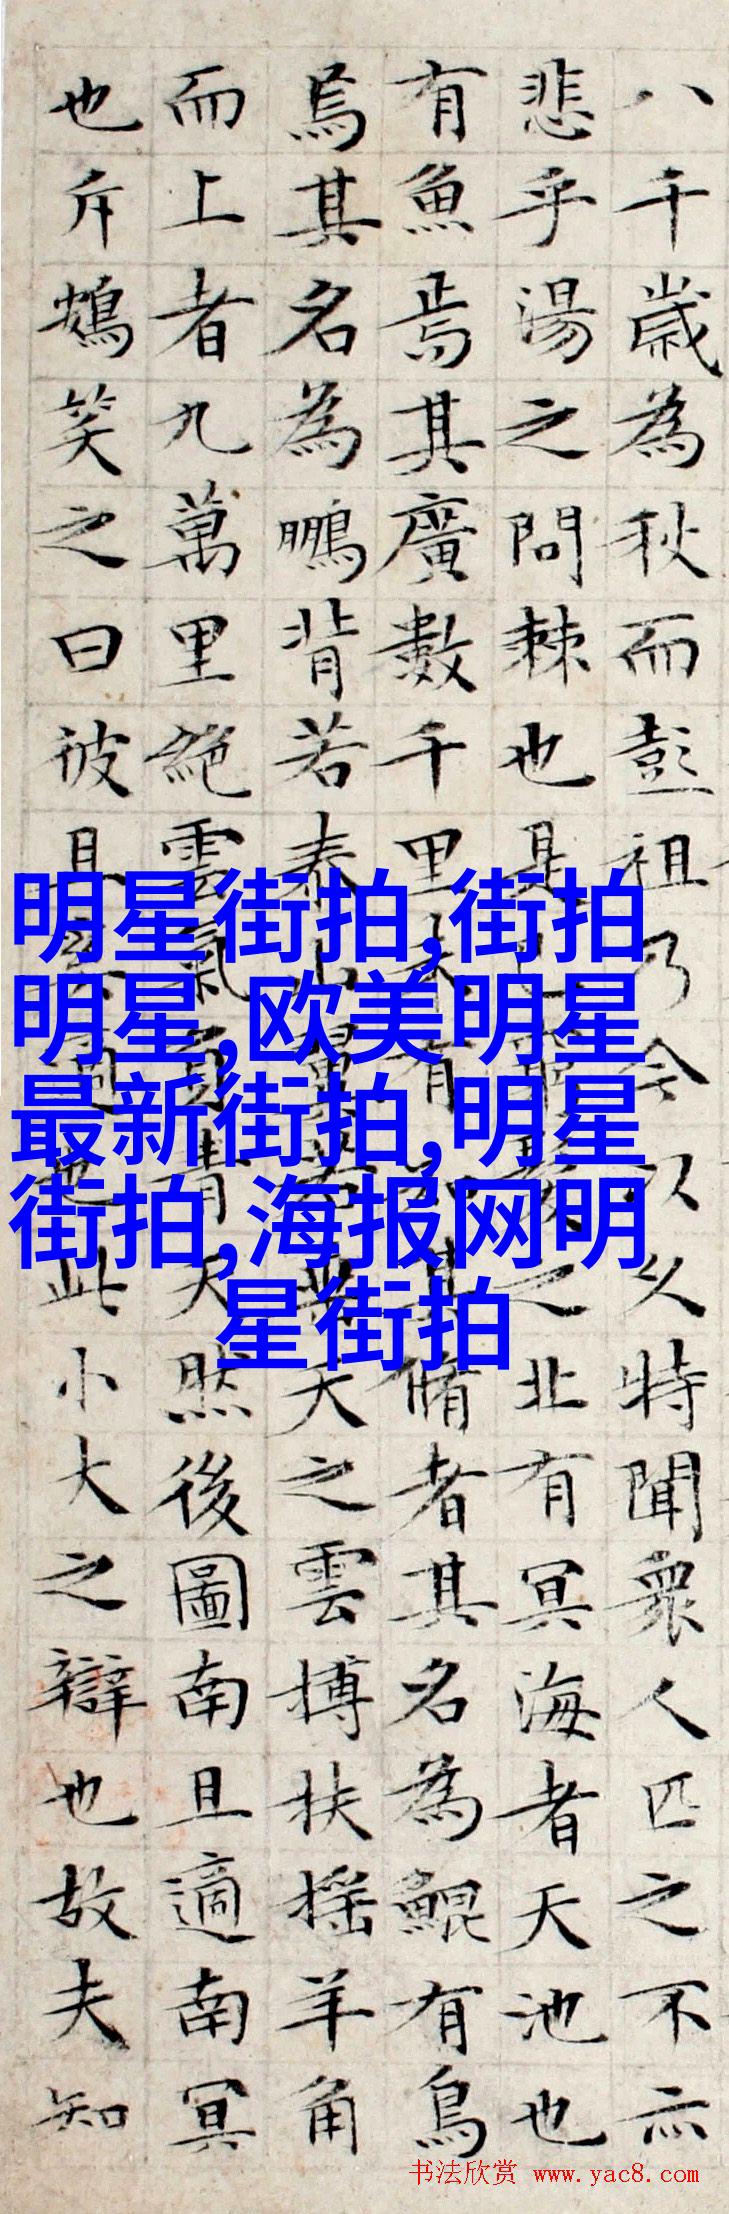 八千歲為秋而彭祖乃今以久特聞眾人匹之不亦
悲乎湯之問棘也是已窮髮之北有冥海者天池也
有魚焉其廣數千里未有知其脩者其名為鯤有鳥
焉其名為鵬背若泰山翼若垂天之雲摶扶搖羊角
而上者九萬里絕雲氣負青天然後圖南且適南冥
也斥鴳笑之曰彼且奚適也此小大之辯也故夫知
明星街拍,街拍
明星,欧美明星
最新街拍,明星
街拍,海报网明
星街拍
书法欣赏 www.yac8.com